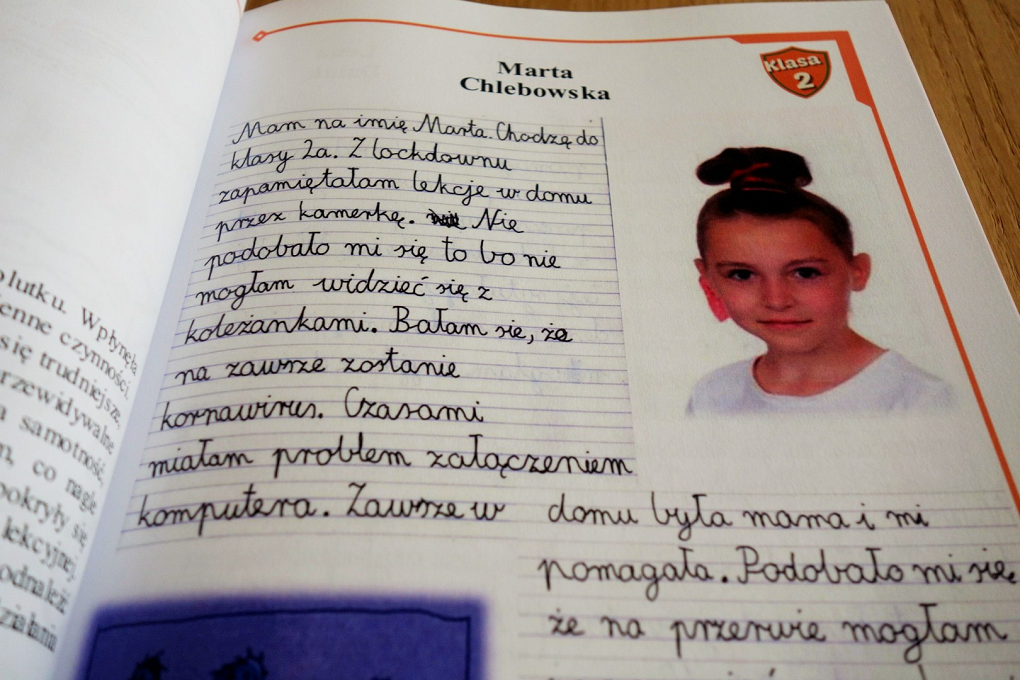 Marta
Chlebowska
Klasa
2
Mam na imię Marta. Chodzę do
klasy 2a. Z lockdownu
zapamiętałam lekcje w domu
przez kamerkę. Nie
podobało mi się to bo nie
mogłam widzieć się z
koleżankami. Bałam sie, że
na zawsze zostanie
kornawirus. Czasami
miałam problem załączeniem
komputera. Zawsze w domu była mama i mi
pomagała. Podobało mi się,
że na przerwie mogłam
olutku. Wpłynęła
enne czynności,
się trudniejsze,
rzewidywalne
a samotność,
m, co nagle
pokryły się
lekcyjnej
odnaleźć
działania